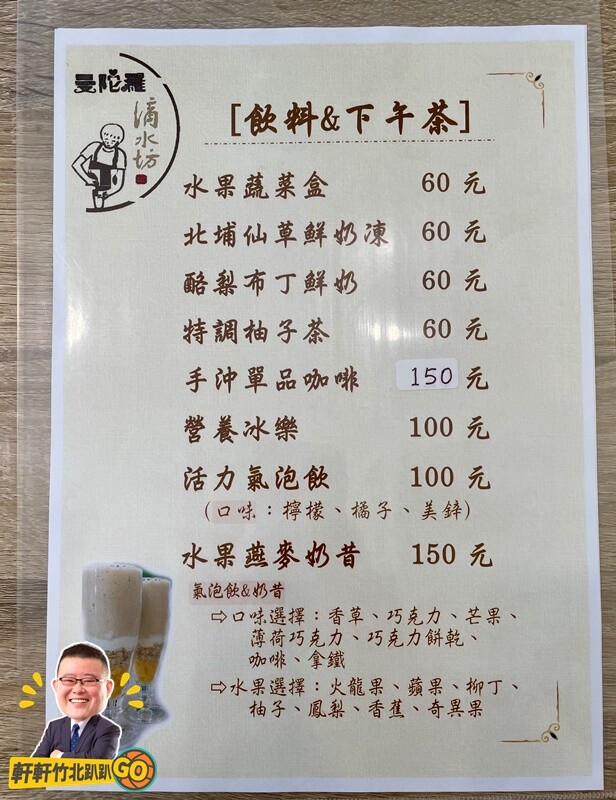 曼陀羅
滴水坊
[飲料&下午茶]
水果蔬菜盒 60 元
北埔仙草鮮奶凍 60 元
酪梨布丁鮮奶 60 元
特調柚子茶 60 元
手沖單品咖啡 150 元
營養冰樂 100 元
活力氣泡飲 100 元
(口味：檸檬、橘子、美鋅)
水果燕麥奶昔 150 元
氣泡飲&奶昔
⇨口味選擇：香草、巧克力、芒果、
薄荷巧克力、巧克力餅乾、
咖啡、拿鐵
⇨水果選擇：火龍果、蘋果、柳丁、
柚子、鳳梨、香蕉、奇異果
軒軒竹北趴趴GO